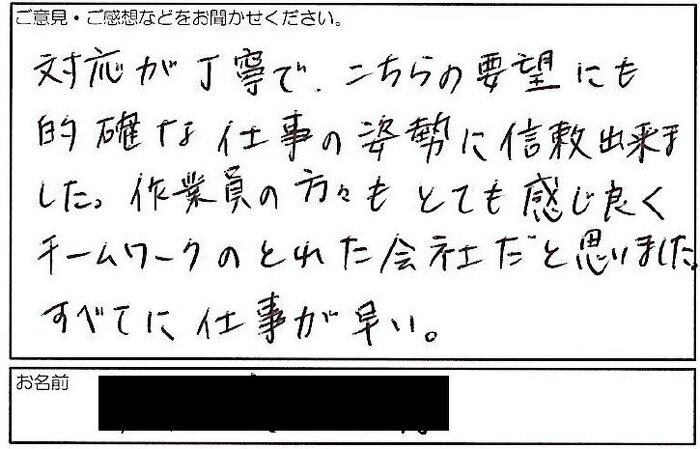 ご意見・ご感想などをお聞かせください。
対応が丁寧で、こちらの要望にも
的確な仕事の姿勢に信敕出来ま
した。作業員の方々もとても感じ良く
チームワークのとれた会社だと思いました。
すべてに仕事が早い。
お名前